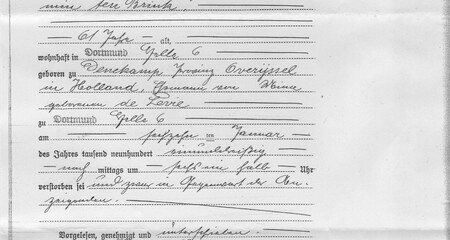 ten Brink,
— 61 Jahre — alt,
wohnhaft in Dortmund Helle 6
geboren zu Denekamp Provinz Overijssel
in Holland, Ehemann von
geborenen de
zu Dortmund Helle 6
am — sechzehnten Januar —
des Jahres tausend neunhundert
— nach mittags um — sechs ein halb — Uhr
verstorben sei und zwar in Gegenwart der An-
zeigenden.
Vorgelesen, genehmigt und unterschrieben.